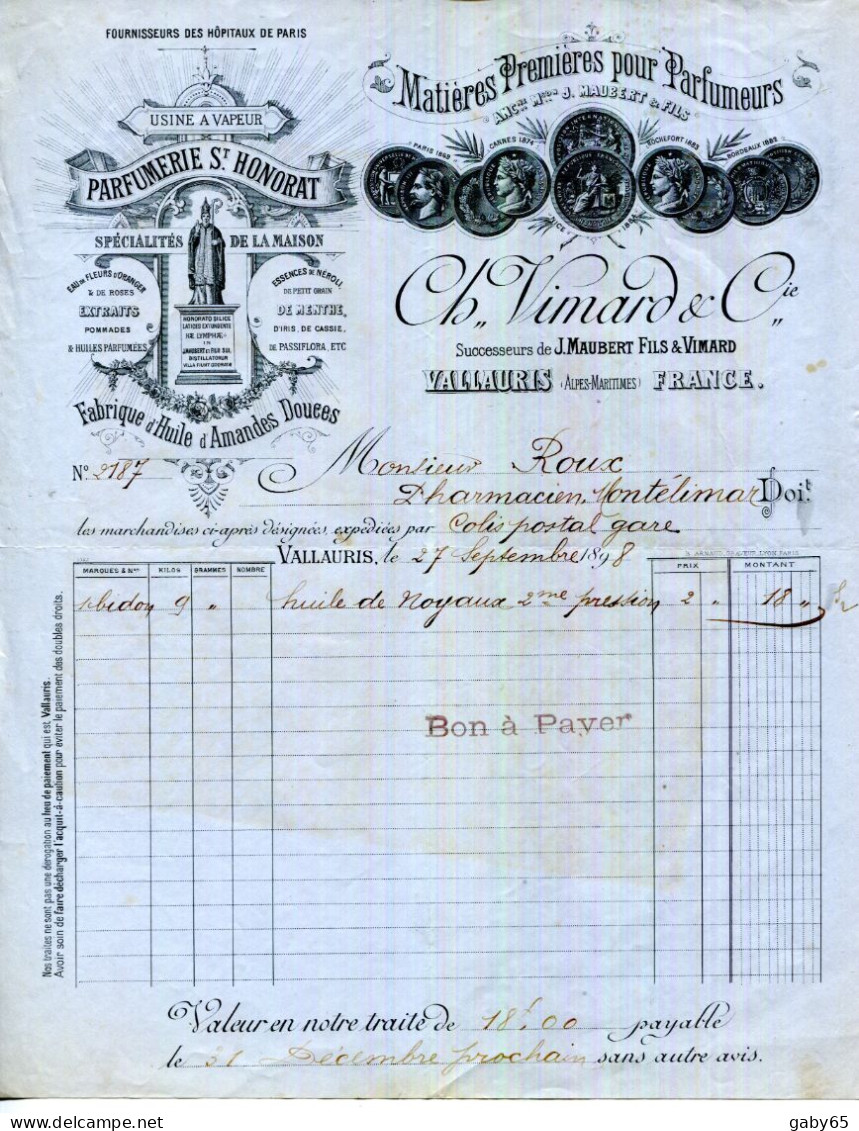 FOURNISSEURS DES HÔPITAUX DE PARIS
USINE A VAPEUR
PARFUMERIE ST HONORAT
SPÉCIALITÉS DE LA MAISON
EAU DE FLEURS D'ORANGER
& DE ROSES
EXTRAITS
POMMADES
& HUILES PARFUMÉES
ESSENCES DE NÉROLI,
DE PETIT GRAIN
DE MENTHE,
D'IRIS, DE CASSIE,
DE PASSIFLORA, ETC
HONORATO SILICE
LATICES EXTUNDENTE
HÆ LYMPHÆ
J. MAUBERT
DISTILLATORUM
VILLA FIUNT
Fabrique d'Huile d'Amandes Douces
Matières Premières pour Parfumeurs
ANCNE MSON J. MAUBERT & FILS
PARIS
CANNES 1874
ROCHEFORT 1883
BORDEAUX 1882
NICE
Ch. Vimard & Cie
Successeurs de J. MAUBERT FILS & VIMARD
VALLAURIS (ALPES-MARITIMES) FRANCE.
No 2187
Monsieur Roux
Pharmacien, Montélimar Doit
les marchandises ci-après désignées, expédiées par Colis postal gare
VALLAURIS, le 27 Septembre 1898
MARQUES & Nos KILOS GRAMMES NOMBRE PRIX MONTANT
1 bidon 9 " huile de Noyaux 2me pression 2 " 18 "
Bon à Payer
Nos traites ne sont pas une dérogation au lieu de paiement qui est Vallauris.
Avoir soin de faire décharger l'acquit-à-caution pour eviter le paiement des doubles droits.
Valeur en notre traite de 18f.00 payable
le 31 Décembre prochain, sans autre avis.
gaby65